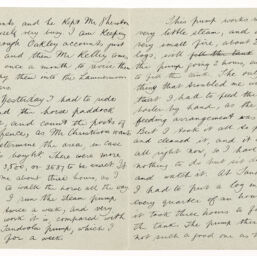 and he kept Mr Thornton
very busy. I am keeping
Oakley accounts just
and then Mr Kelley one,
once a month to save the
them into the
Yesterday I had to ride
the horse paddock
and count the posts of
fence, as Mr Christison wants
determine the area, in case
is bought. There were over
3,500, or 3537 to be exact. It
me about three hours, as I
to walk the horse all the way.
I run the steam pump
twice a week, and very
work it is, compared with
Tandoola pump, which I
for a week.
This pump works
very little steam, and
very small fire, about 2
logs, will
the pump going 2 hours,
to fill the tank. The only
thing that troubled me
that I had to feed the
boiler by hand, as the
feeding arrangement was
But I took it all to
and cleaned it, and it
all right now, so I have
nothing to do but sit
and watch it. At Tandoola
I had to put a log in
every quarter of an hour
it took three hours to fill
the tank. The pump there
not such a good one as